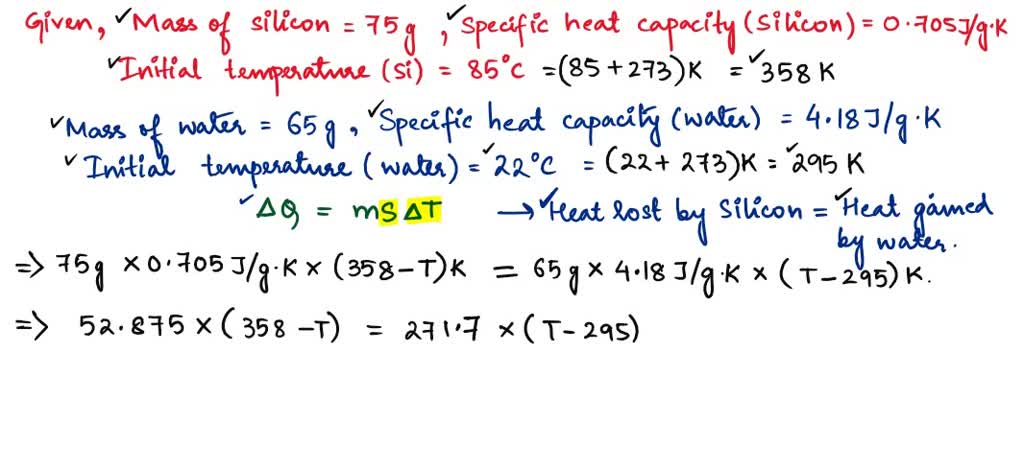 Given, ✓Mass of silicon = 75g, ✓Specific heat capacity (Silicon) = 0.705J/g.K
✓Initial temperature (si) = 85°C = (85+273)K = ✓358 K
✓Mass of water = 65g, ✓Specific heat capacity (water) = 4.18J/g.K
✓Initial temperature (water) = ✓22°C = (22+273)K = ✓295 K
✓ΔQ = mSΔT → ✓Heat lost by Silicon = ✓Heat gained
by water.
=> 75g × 0.705J/g.K × (358-T)K = 65g × 4.18J/g.K × (T-295)K.
=> 52.875 × (358-T) = 271.7 × (T-295)